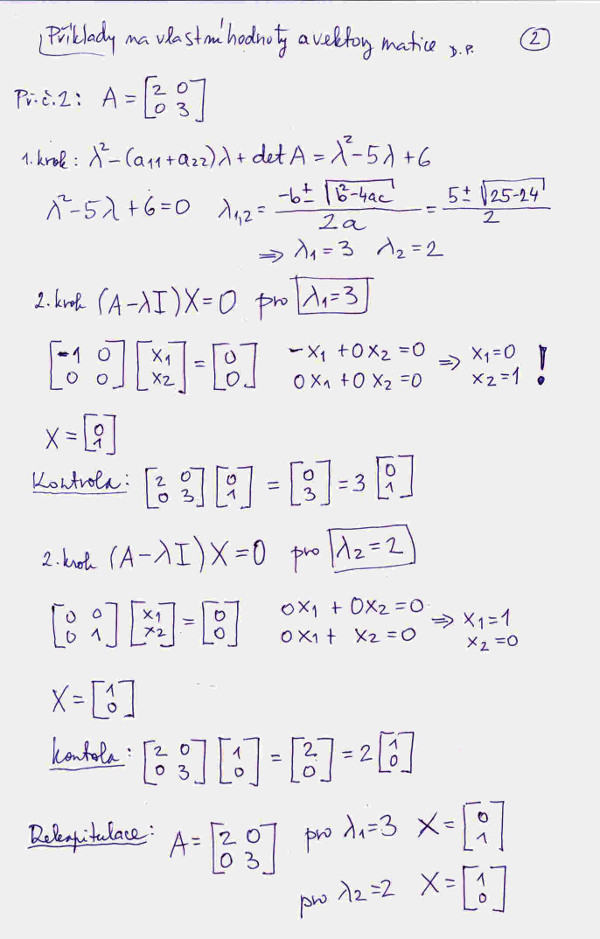 Příklady na vlastní hodnoty a vektory matice D.P. 2
Př.č.2: A = [2 0; 0 3]
1. krok: λ² - (a11 + a22)λ + det A = λ² - 5λ + 6
λ² - 5λ + 6 = 0 λ1,2 = (-b ± √(b² - 4ac)) / 2a = (5 ± √(25 - 24)) / 2
⇒ λ1 = 3 λ2 = 2
2. krok (A - λI)X = 0 pro λ1 = 3
[-1 0; 0 0] [x1; x2] = [0; 0] -x1 + 0x2 = 0 ⇒ x1 = 0 !
0x1 + 0x2 = 0 x2 = 1
X = [0; 1]
Kontrola: [2 0; 0 3] [0; 1] = [0; 3] = 3 [0; 1]
2. krok (A - λI)X = 0 pro λ2 = 2
[0 0; 0 1] [x1; x2] = [0; 0] 0x1 + 0x2 = 0 ⇒ x1 = 1
0x1 + x2 = 0 x2 = 0
X = [1; 0]
Kontola: [2 0; 0 3] [1; 0] = [2; 0] = 2 [1; 0]
Rekapitulace: A = [2 0; 0 3] pro λ1 = 3 X = [0; 1]
pro λ2 = 2 X = [1; 0]